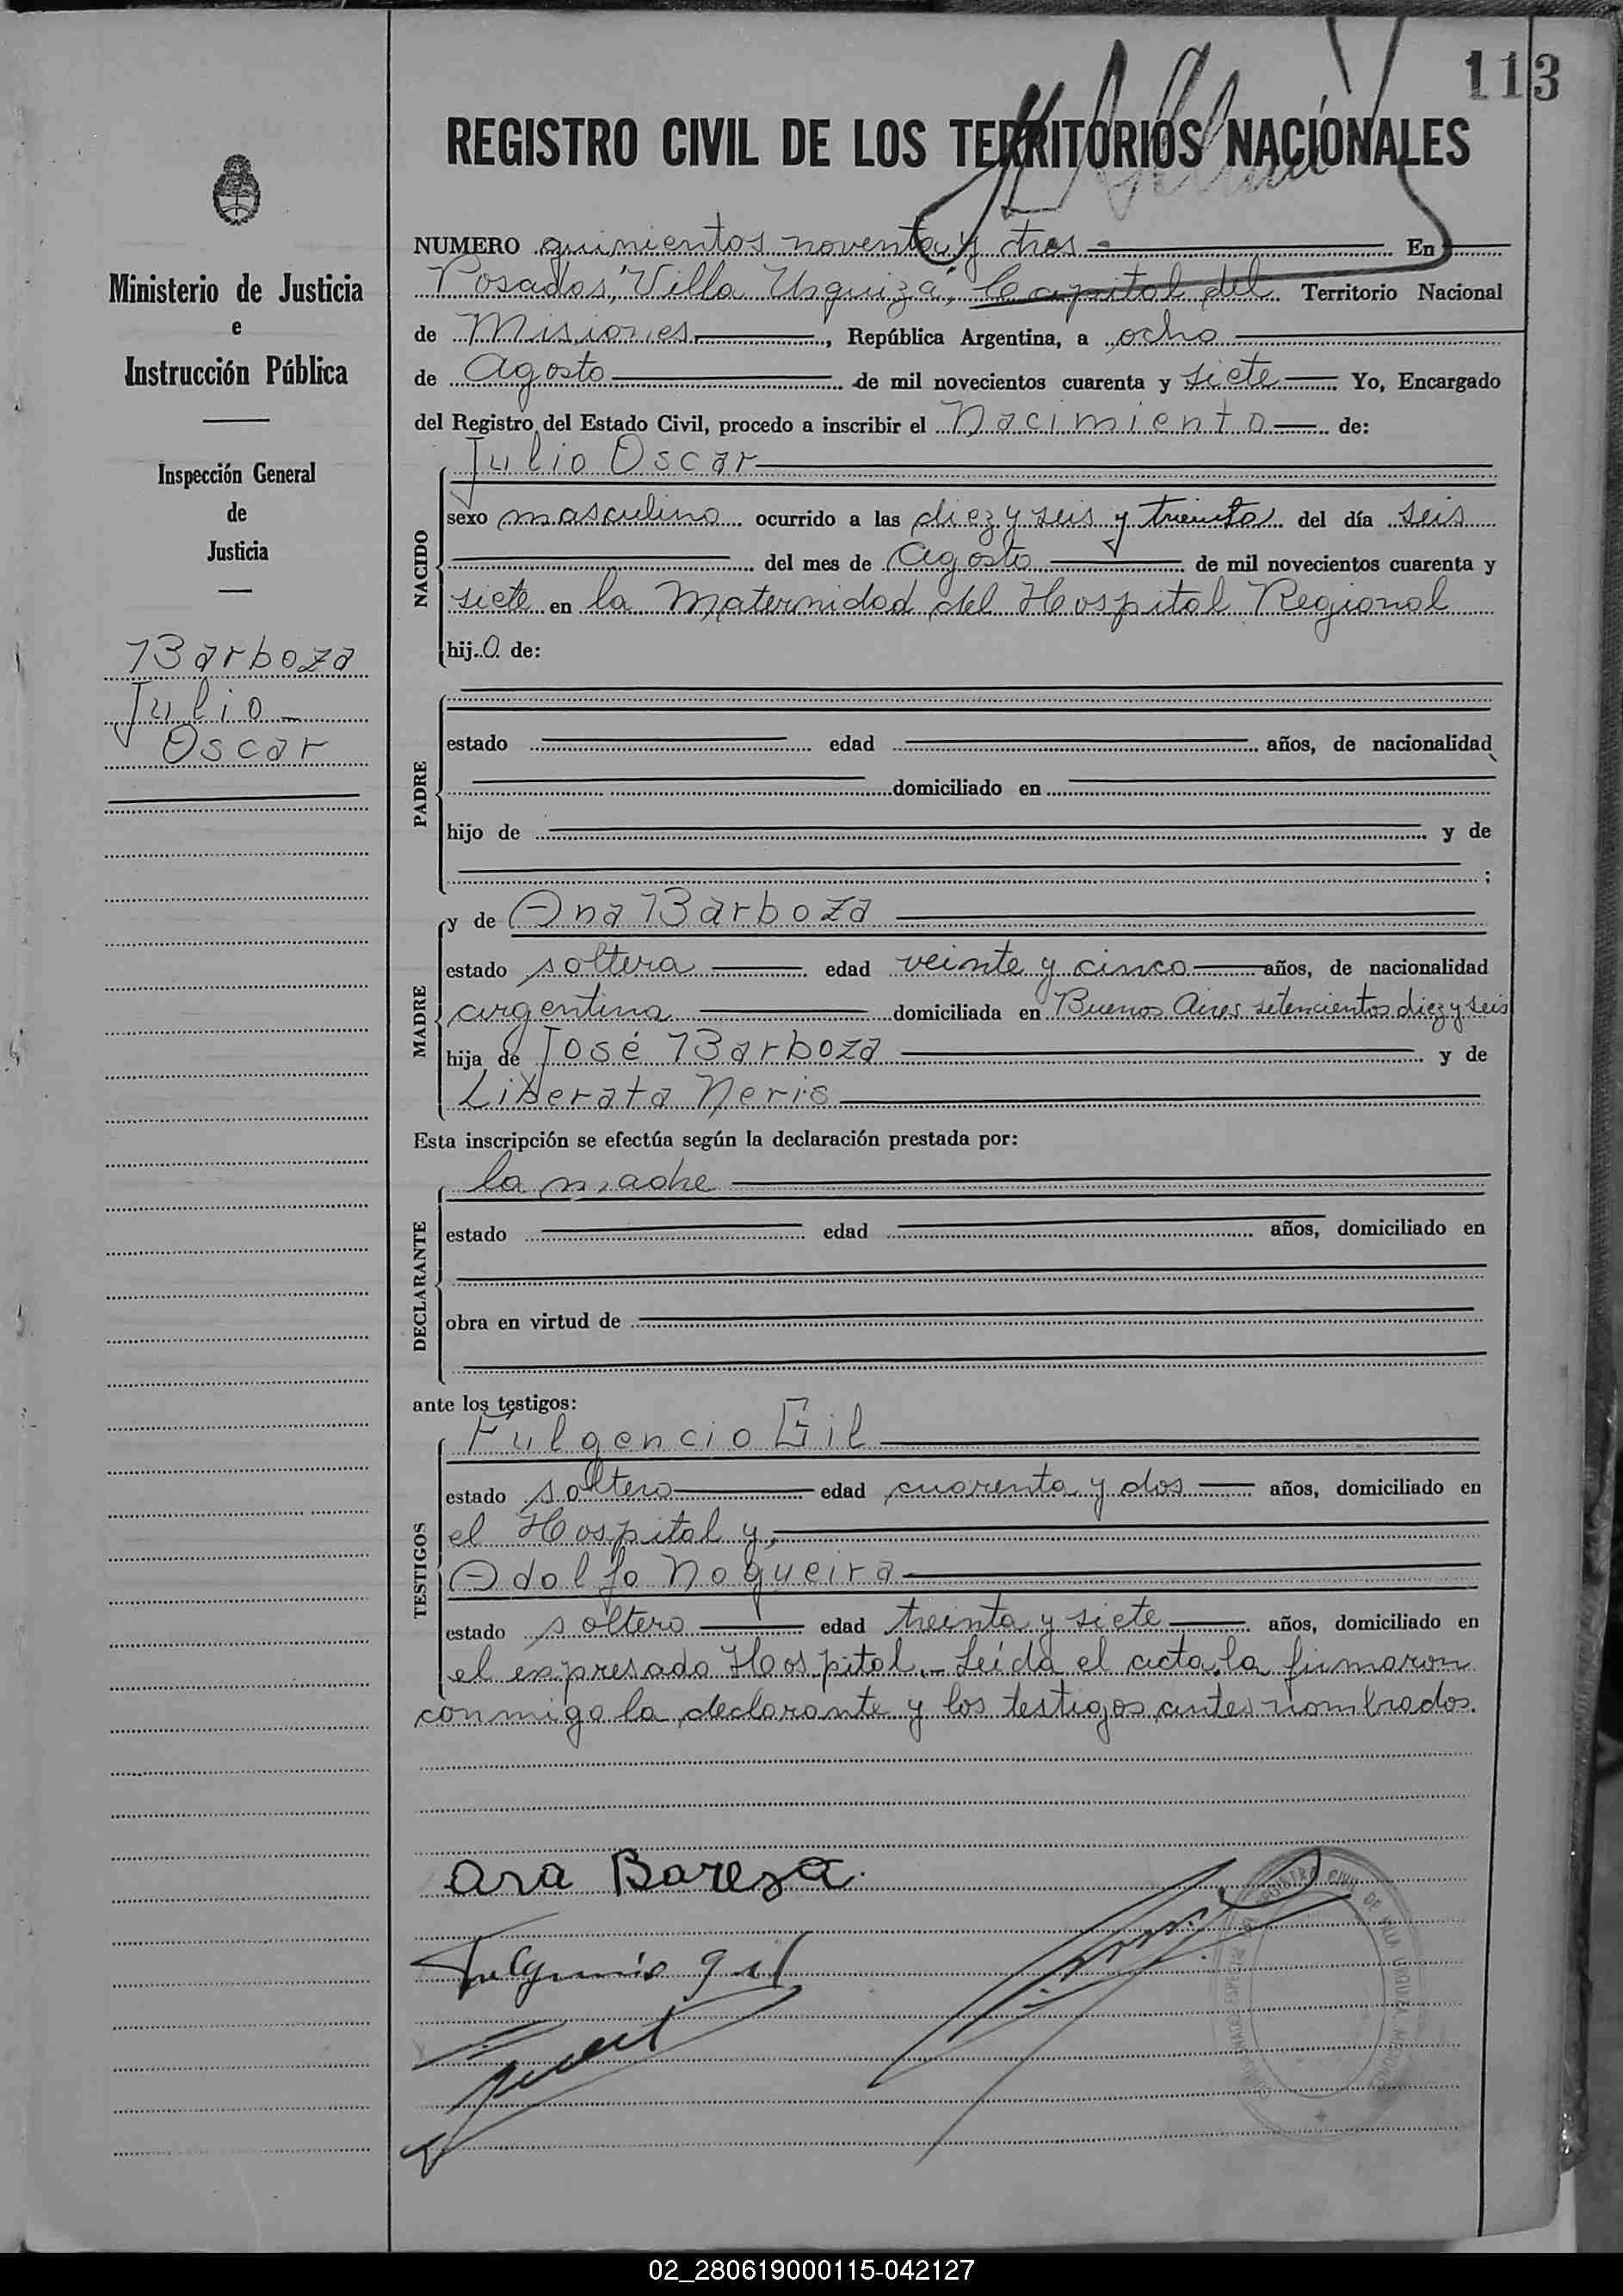 113
REGISTRO CIVIL DE LOS TERRITORIOS NACIONALES
Ministerio de Justicia
e
Instrucción Pública
Inspección General
de
Justicia
Barboza
Julio
Oscar
NUMERO quinientos noventa y tres En
Posadas, "Villa Urquiza", Capital del Territorio Nacional
de Misiones, República Argentina, a ocho
de Agosto de mil novecientos cuarenta y siete Yo, Encargado
del Registro del Estado Civil, procedo a inscribir el Nacimiento de:
NACIDO
Julio Oscar
sexo masculino ocurrido a las diez y seis y treinta del día seis
del mes de Agosto de mil novecientos cuarenta y
siete en la Maternidad del Hospital Regional
hijo de:
PADRE
estado edad años, de nacionalidad
domiciliado en
hijo de y de
;
MADRE
y de Ana Barboza
estado soltera edad veinte y cinco años, de nacionalidad
argentina domiciliada en Buenos Aires setencientos diez y seis
hija de José Barboza y de
Liberata Neris
Esta inscripción se efectúa según la declaración prestada por:
DECLARANTE
la madre
estado edad años, domiciliado en
obra en virtud de
ante los testigos:
TESTIGOS
Fulgencio Gil
estado soltero edad cuarenta y dos años, domiciliado en
el Hospital y,
Adolfo Nogueira
estado soltero edad treinta y siete años, domiciliado en
el expresado Hospital.- Leída el acta, la firmaron
conmigo la declarante y los testigos antes nombrados.
Ana Bareza.
Fulgencio Gil
REGISTRO CIVIL DE VILLA URQUIZA, MISIONES
02_280619000115-042127